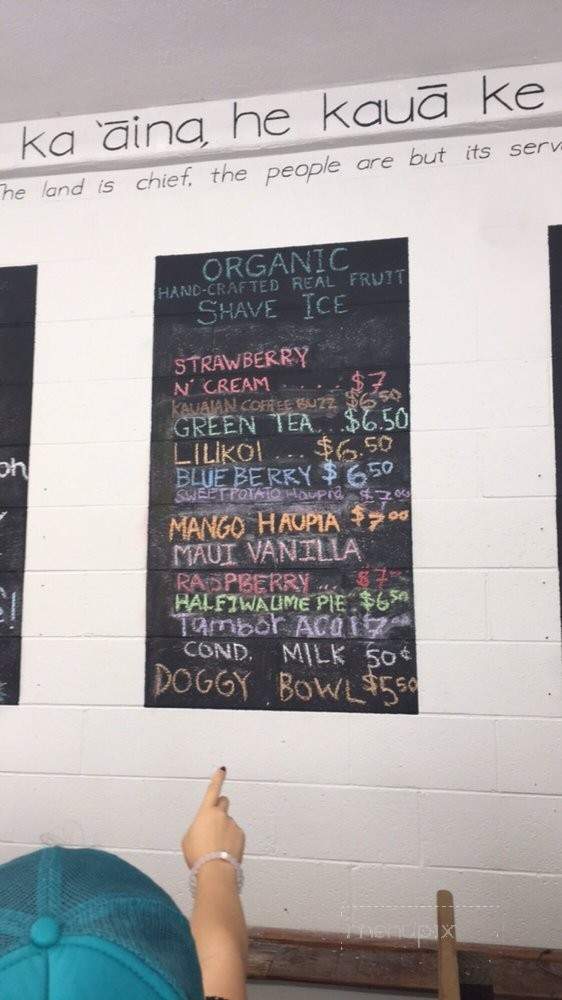 ka ʻāina, he kauā ke
The land is chief, the people are but its serv
ORGANIC
HAND-CRAFTED REAL FRUIT
SHAVE ICE
STRAWBERRY
N' CREAM ..... $7
KAUAIAN COFFEE BUZZ $6.50
GREEN TEA...$6.50
LILIKOI ... $6.50
BLUEBERRY $6.50
SWEET POTATO HAUPIA $7.00
MANGO HAUPIA $7.00
MAUI VANILLA
RASPBERRY ... $7
PIE $6.50
Acai 7
COND. MILK 50¢
DOGGY BOWL $5.50
oh
!
menupix